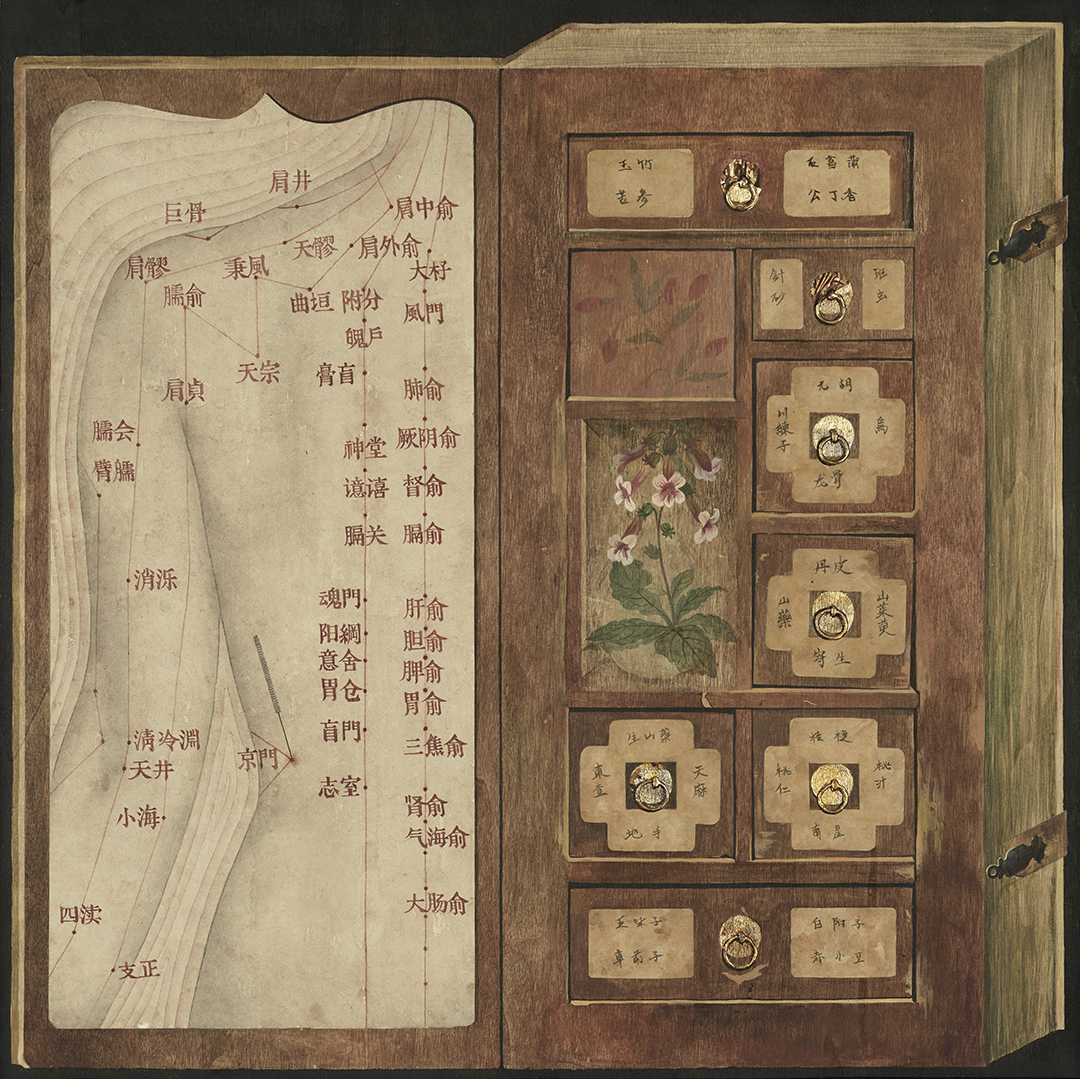 肩井
肩中俞
巨骨
天髎
肩外俞
肩髎
秉風
大杼
臑俞
曲垣
附分
風門
魄戶
天宗
膏盲
肩貞
肺俞
臑会
厥阴俞
神堂
臂臑
譩譆
督俞
膈关
膈俞
消泺
魂門
肝俞
阳綱
胆俞
意舍
脾俞
胃仓
胃俞
清冷淵
盲門
三焦俞
京門
天井
志室
肾俞
小海
气海俞
大肠俞
四渎
支正
玉竹
苦参
石菖蒲
公丁香
針砂
元胡
川練子
龙骨
丹皮
山藥
山茱萸
寄生
生山藥
天麻
桔梗
桃仁
南星
五味子
車前子
白附子
赤小豆